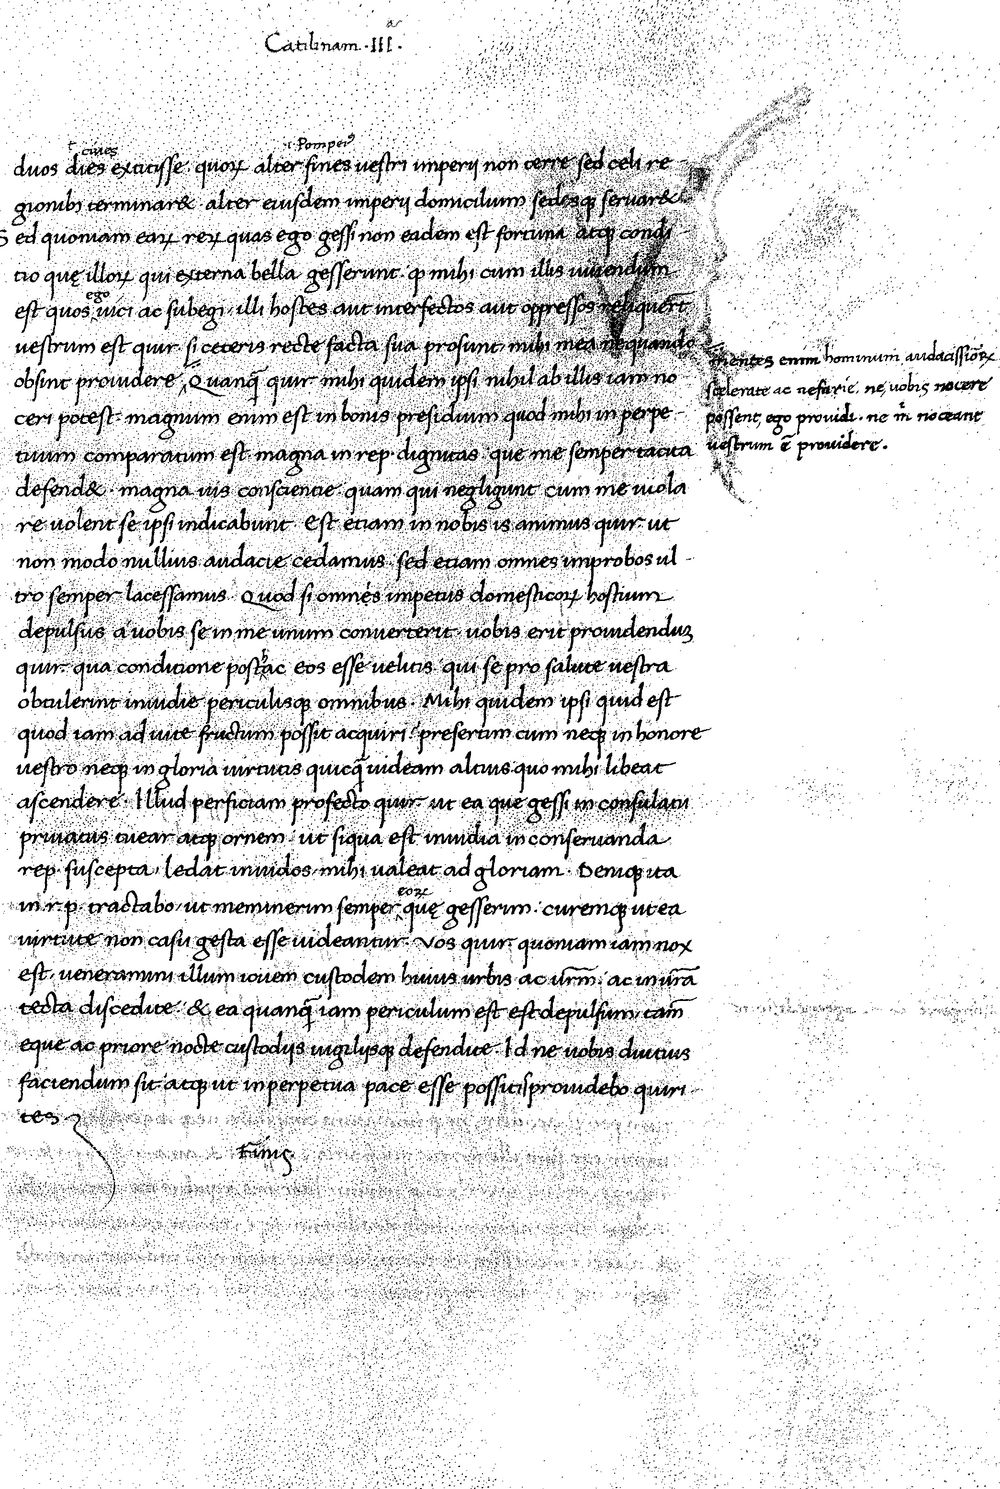 Catilinam · III ·
ciues
i Pompei9
duos dies extitisse · quoꝝ alter fines uestri imperij non terre sed celi re-
gionibꝰ terminar& · alter eiusdem imperij domicilium sedesqꝫ seruar&
Sed quoniam earꝝ rerꝝ quas ego gessi non eadem est fortuna atqꝫ condi
tio quę illoꝝ qui externa bella gesserunt · ꝙ mihi cum illis uiuendum
ego
est quos uici ac subegi · illi hostes aut interfectos aut oppressos reliquerūt
uestrum est quir· si ceteris recte facta sua prosunt mihi mea nequando
obsint prouidere · Quanq̄ quir· mihi quidem ipsi nihil ab illis iam no
ceri potest · magnum enim est in bonis presidium quod mihi in perpe-
tuum comparatum est · magna in rep· dignitas · que me semper tacita
defend& · magna uis conscientie quam qui negligunt cum me uiola
re uolent se ipsi indicabunt · Est etiam in nobis is animus quir· ut
non modo nullius audacie cedamus · sed etiam omnes improbos ul-
tro semper lacessamus · Quod si omnes impetus domesticoꝝ hostium
depulsus a uobis se in me unum conuerterit · uobis erit prouidenduꝫ
quir· qua conditione posthac eos esse uelitis · qui se pro salute uestra
obtulerint inuidie periculisqꝫ omnibus · Mihi quidem ipsi quid est
quod iam ad uite fructum possit acquiri? presertim cum neqꝫ in honore
uestro neqꝫ in gloria uirtutis quicq̄ uideam altius quo mihi libeat
ascendere · Illud perficiam profecto quir· ut ea que gessi in consulatu
priuatus tuear atqꝫ ornem · ut siqua est inuidia in conseruanda
rep· suscepta · ledat inuidos mihi ualeat ad gloriam · Deniqꝫ ita
eoꝝ
in r·p· tractabo · ut meminerim semper quę gesserim · curemqꝫ ut ea
uirtute non casu gesta esse uideantur · Vos quir· quoniam iam nox
est · ueneramini illum iouem custodem huius urbis ac ur̄m · ac in ur̄a
tecta discedite · & ea quanq̄ iam periculum est est depulsum · tam̄
eque ac priore nocte custodijs uigilijsqꝫ defendite · Id ne uobis diutius
faciendum sit atqꝫ ut in perpetua pace esse possitis prouidebo quiri-
tes
Finis
mentes enim hominum audacissioꝝ
scelerate ac nefarie · ne uobis nocere
possent, ego prouidi · ne m̄ noceant
uestrum ē prouidere ·